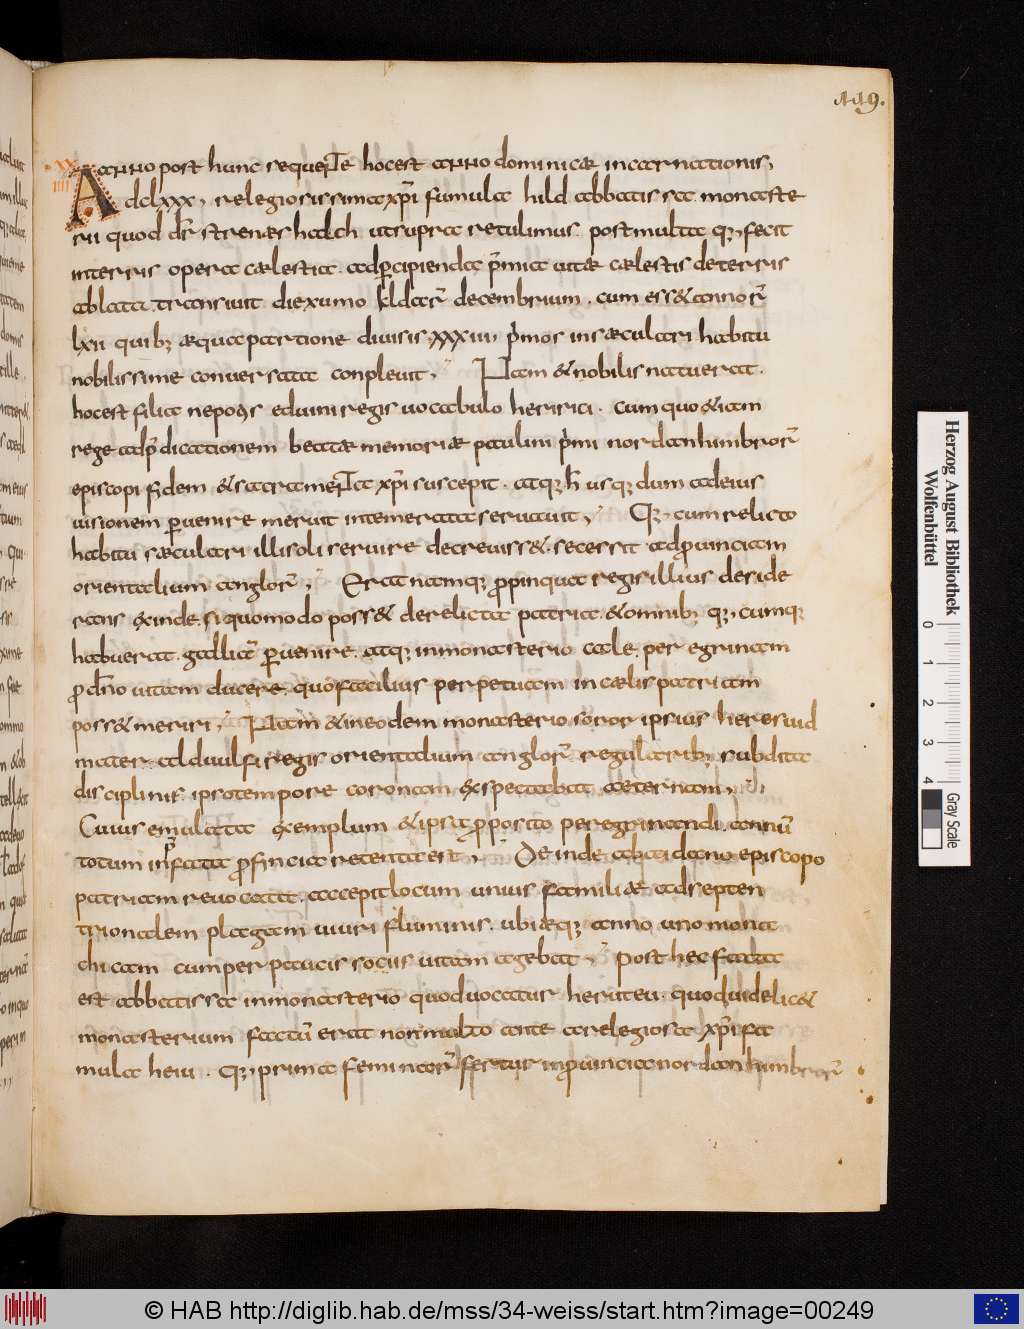 119.
XX IIII
Anno post hunc sequente hocest anno dominicæ incarnationis,
dclxxx, relegiosissima xp̄i famula hild abbatissa monaste
rii quod dr̄ strenæshalch ut supra retulimus postmulta q;, fecit
interris opera cælestia. adp̱cipienda p̄mia uitæ cælestis deterris
ablata transiuit diexumo kldar̄ decembrium. cum ess& annor̄
lxii quib; æqua partione diuisis xxxiii, p̄mos insæculari habitu
nobilissime conuersata conpleuit, Nam &nobilis natuerat.
hocest filia nepotis eduini regis uocabulo heririci. cum quo &iam
rege adp̄dicationem beatæ memoriæ paulini p̄mi nordanhimbror̄
episcopi fidem &sacramenta xp̄i suscepit. atq; h̄ usq; dum adeius
uisionem p̱uenire meruit intemerata seruauit, Q;, cum relicto
habitu sæculari illisoli seruire decreuiss&. secessit adprouinciam
orientalium anglor̄, Erat namq; propinqua regis illius deside
rans exinde. si quomodo poss& derelicta patria &omnib; q;, cumq;
habuerat. gallia p̱uenire. atq; inmonasterio cale. per egrinam
pro dn̄o uitam ducere. quo facilius perpetuam incælis patriam
poss& meriri, Nam &ineodem monasterio soror ipsius heresuid
mater alduulfi regis orientalium anglor̄. regularib; subdita
disciplinis ipsotempore coronam exspectabat aeternam,
Cuius emulata exemplum &ipsa proposito peregrinandi. annū
totum inp̄fata prouincia retenta est, Deinde abaidano episcopo
patriam reuocata. accepit locum unius familiæ adsepten
trionalem plagam uiuri fluminis. ubi æq; anno uno mona
chicam cumper paucis sociis uitam agebat, Post hec facta
est abbatissa inmonasterio quoduocatur heruteu. quoduidelic&
monasterium factū erat nonmulto ante arelegiosa xp̄i fa
mula heiu. Q;, prima feminar̄ fertur inprouincia nordanhimbror̄
Herzog August Bibliothek
Wolfenbüttel
0 1 2 3 4
Gray Scale
© HAB http://diglib.hab.de/mss/34-weiss/start.htm?image=00249